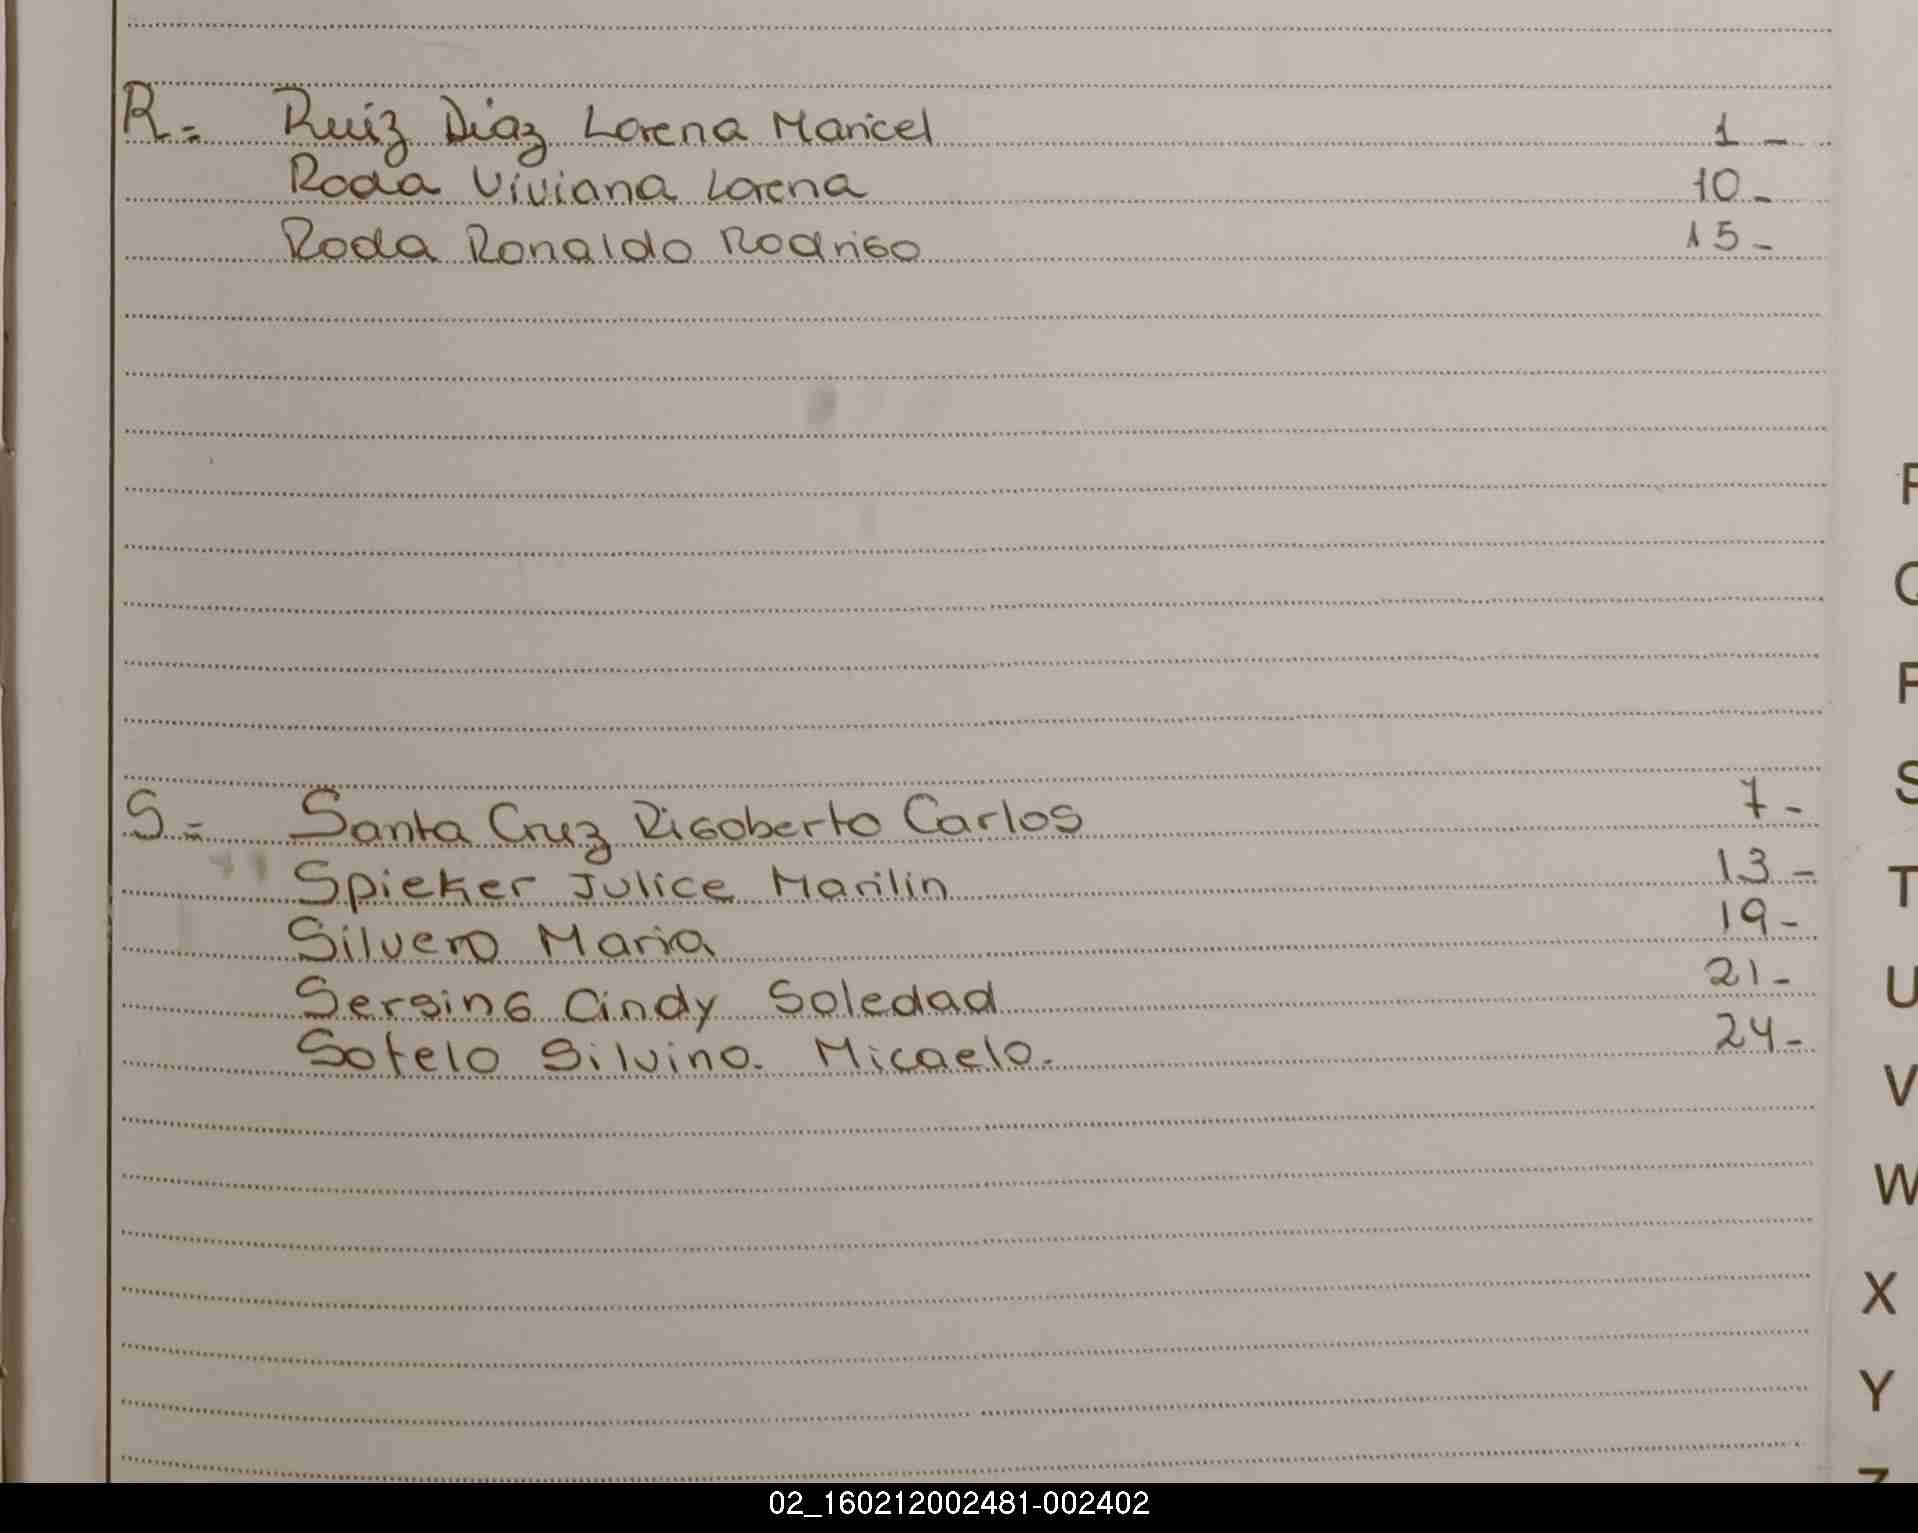 R= Ruiz Diaz Lorena Maricel 1-
Roda Viviana Lorena 10-
Roda Ronaldo Rodrigo 15-
S= Santa Cruz Rigoberto Carlos 7-
Spieker Julice Marilin 13-
Silvero Maria 19-
Sersing Cindy Soledad 21-
Sotelo Silvino. Micaelo. 24-
P
Q
R
S
T
U
V
W
X
Y
Z
02_160212002481-002402